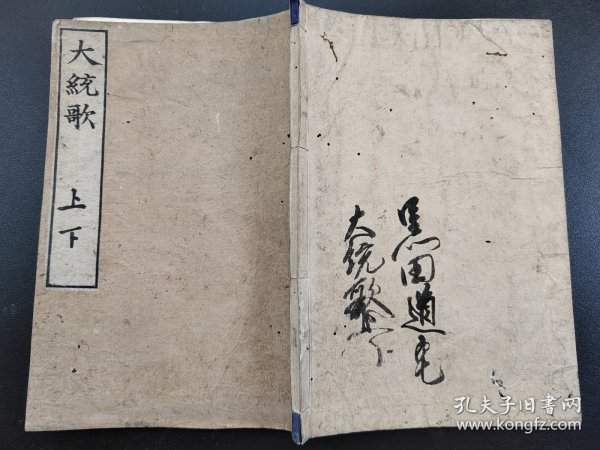 大統歌
上下
田道
大統歌
孔夫子旧書网
www.kongfz.com